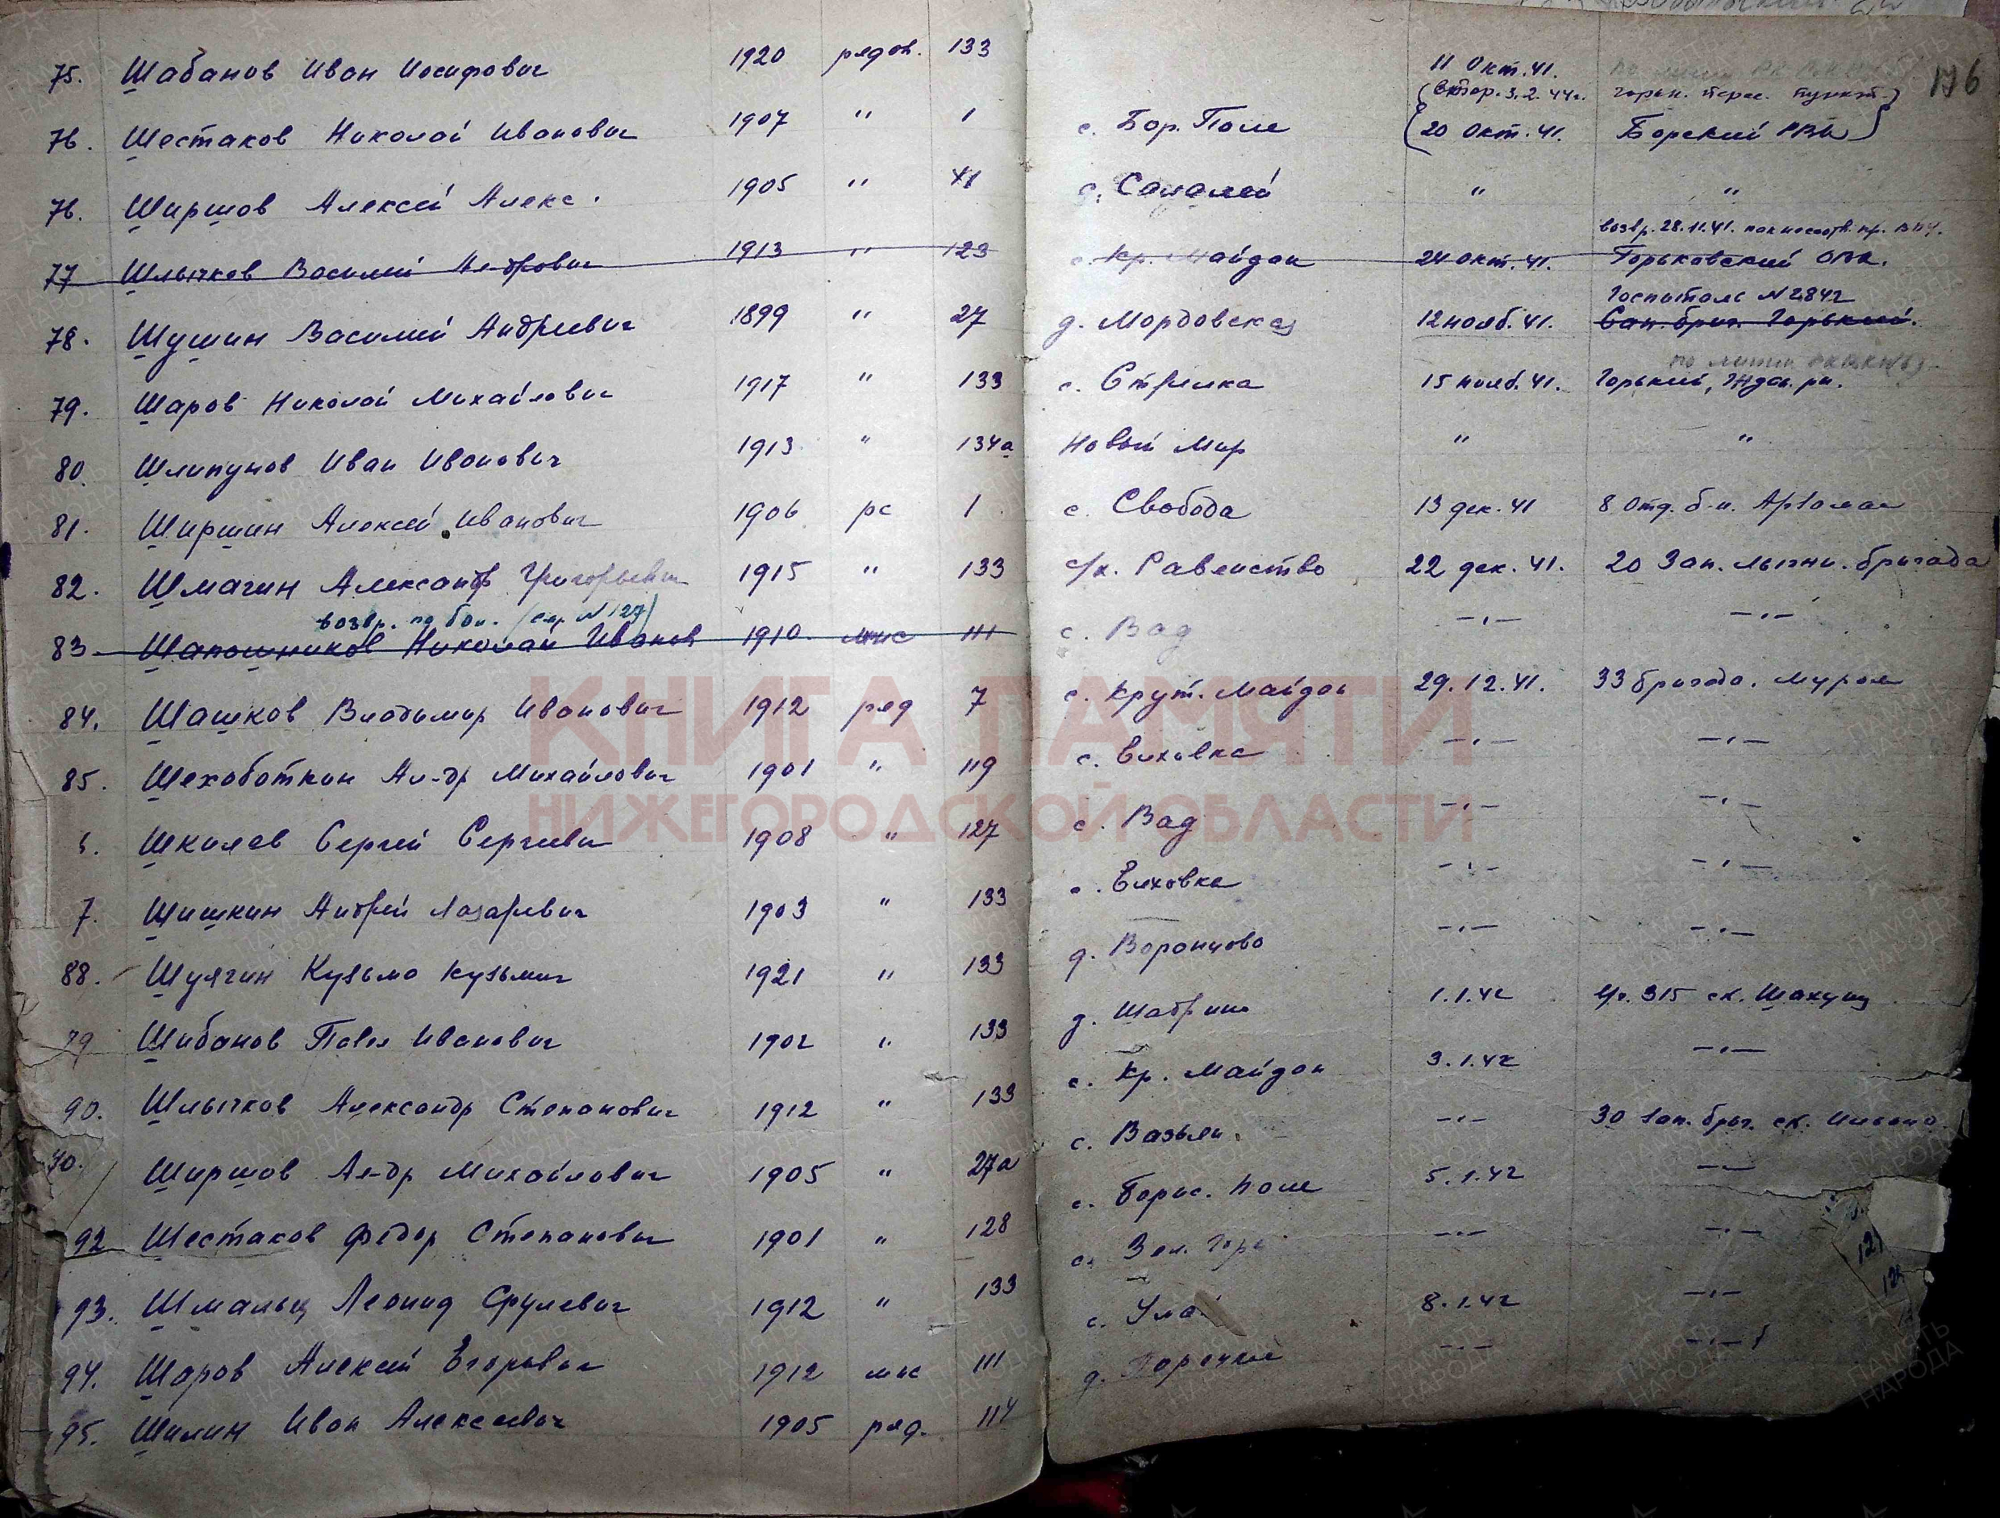 176
75. Шабанов Иван Иосифович 1920 рядов. 133 11 Окт. 41.
(втор. 3.2.44г. горьк. перес. пункт.)
76. Шестаков Николай Иванович 1907 " 1 с. Бор. Поле 20 Окт. 41. Борский РВК
76. Ширшов Алексей Алекс. 1905 " 41 с. "  "
возвр. 28.11.41.
77 Шлычков Василий Петрович 1913 " 123 с. Кр. Майдан 24 окт. 41. Горьковский ОВК.
Госпиталь N2842
78. Шушин Василий Андреевич 1899 " 27 д. Мордовская 12 нояб. 41. Сан. бриг. Горький.
79. Шаров Николай Михайлович 1917 " 133 с. Стрелка 15 нояб. 41. Горький, Ждан. рн.
80. Шлипунов Иван Иванович 1913 " 134а Новый Мир " "
81. Ширшин Алексей Иванович 1906 рс 1 с. Свобода 13 дек. 41 8 Отд. б-н.
82. Шмагин Александр Григорьевич 1915 " 133 с/х. Равенство 22 дек. 41. 20 Зап. лыжн. бригада
возвр. по бол. (см. N127)
83 Шапошников Николай Иванов 1910 мнс 111 с. Вад –"– –"–
84. Шашков Владимир Иванович 1912 ряд 7 с. Крут. Майдан 29.12.41. 33 бригада. Муром
85. Шехоботкин Ал-др Михайлович 1901 " 119 с. Елховка –"– –"–
6. Школев Сергей Сергеевич 1908 " 127 с. Вад –"– –"–
7. Шишкин Андрей Лазаревич 1903 " 133 с. Елховка –"– –"–
88. Шулягин Кузьма Кузьмич 1921 " 133 д. Воронцово –"– –"–
79 Шибанов Павел Иванович 1902 " 133 д. 1.1.42 315 ст. Шахунья
90. Шлычков Александр Степанович 1912 " 133 с. Кр. Майдан 3.1.42 –"–
90. Ширшов Ал-др Михайлович 1905 " 27а с. Вазьян. –"– 30 зап. бриг. ст.
92 Шестаков Федор Степанович 1901 " 128 с. Борис. Поле 5.1.42 –"–
93. Шмальц Леонид 1912 " 133 с. Зел. Гора –"– –"–
94. Шаров Алексей Егорович 1912 мнс 111 с. 8.1.42 –"–
95. Шилин Иван Алексеевич 1905 ряд. 114 д. –"– –"–
КНИГА ПАМЯТИ
НИЖЕГОРОДСКОЙ ОБЛАСТИ
ПАМЯТЬ НАРОДА